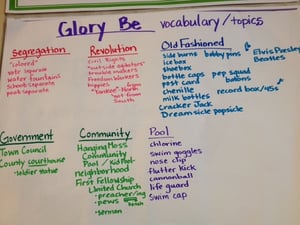 Glory Be vocabulary/topics
Segregation
"colored"
voter separate
water fountains
school separate
pool separate
Revolution
Civil Rights
"outside agitators"
trouble makers
Freedom Workers
hippies
"Yankee"-North
not from
South
Old Fashioned
side burns bobby pins
ice box
shoebox
bottle caps pep squad
post card batons
chenille
milk bottles record box/45s
Cracker Jack
Dreamsicle popsicle
Elvis Presley
Beatles
Government
Town Council
County courthouse
soldier statue
Community
Hanging Moss
Community
Pool / Kid Pool
neighborhood
First Fellowship
United Church
preacher/ing
pews
bench
sermon
Pool
chlorine
swim goggles
nose clip
flutter kick
cannonball
life guard
swim cap